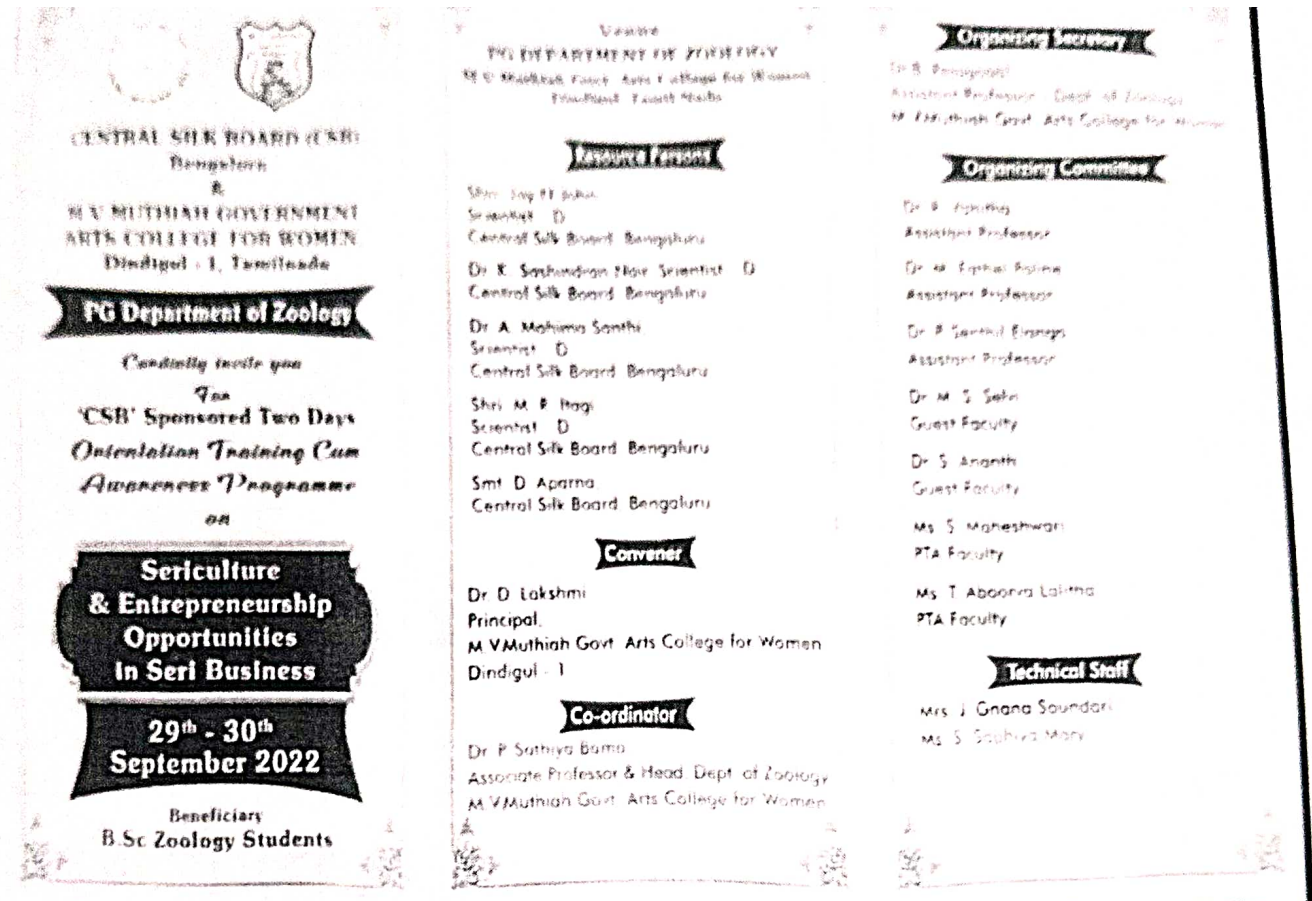 CENTRAL SILK BOARD (CSB)
Bengaluru
&
M.V MUTHIAH GOVERNMENT
ARTS COLLEGE FOR WOMEN
Dindigul - 1, Tamilnadu
PG Department of Zoology
Cordially invite you
For
'CSB' Sponsored Two Days
Orientation Training Cum
Awareness Programme
on
Sericulture
& Entrepreneurship
Opportunities
in Seri Business
29th - 30th
September 2022
Beneficiary
B.Sc Zoology Students
Venue
PG DEPARTMENT OF ZOOLOGY
M.V Muthiah Govt Arts College for Women
Resource Persons
Shri
Scientist D
Central Silk Board Bengaluru
Dr K Nair Scientist D
Central Silk Board Bengaluru
Dr A Mahima Santhi
Scientist D
Central Silk Board Bengaluru
Shri M R Itagi
Scientist D
Central Silk Board Bengaluru
Smt D Aparna
Central Silk Board Bengaluru
Convener
Dr D Lakshmi
Principal,
M.V.Muthiah Govt Arts College for Women
Dindigul - 1
Co-ordinator
Dr P Sathiya Bama
Associate Professor & Head Dept of Zoology
M.V.Muthiah Govt Arts College for Women
Organizing Secretary
Dr B
Assistant Professor Dept of Zoology
M.V.Muthiah Govt Arts College for Women
Organizing Committee
Dr
Assistant Professor
Dr M
Assistant Professor
Dr P Senthil
Assistant Professor
Dr M S
Guest Faculty
Dr S Ananth
Guest Faculty
Ms S Maheshwari
PTA Faculty
Ms T Aboorva Lalitha
PTA Faculty
Technical Staff
Mrs J Gnana Soundari
Ms S Sophiya Mary